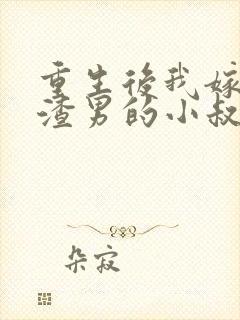 重生後我嫁
渣男的小叔
朵寂